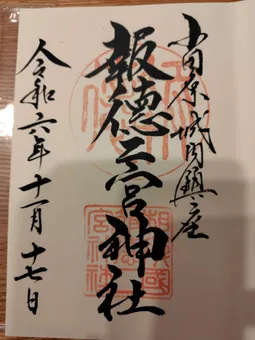 小田原城内鎮座
報徳二宮神社
令和六年十一月十七日